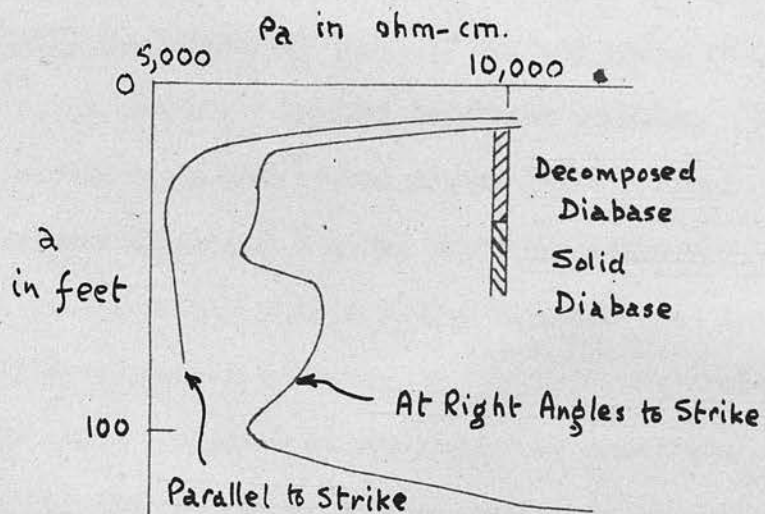 ρa in ohm-cm.
5,000
10,000
0
Decomposed
Diabase
Solid
Diabase
a
in feet
At Right Angles to Strike
100
Parallel to Strike